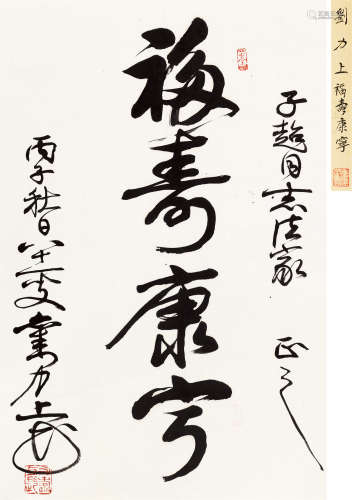 劉力上福壽康寧
子超同志法家
正之
福壽康寧
丙子秋日八十一叟劉力上書